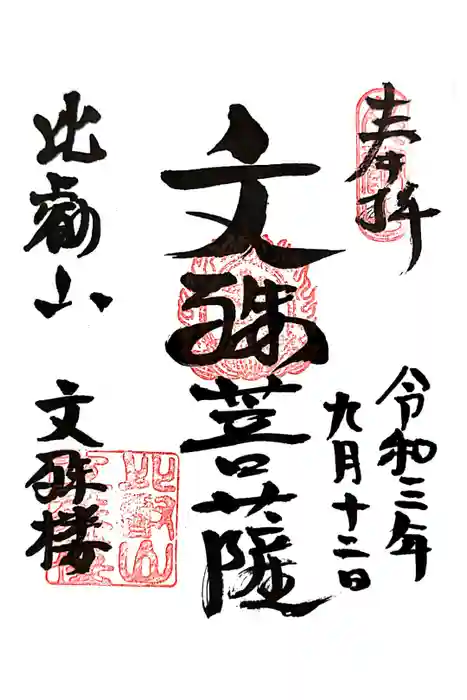 奉拝
令和三年
九月十二日
文殊菩薩
比叡山
文殊楼